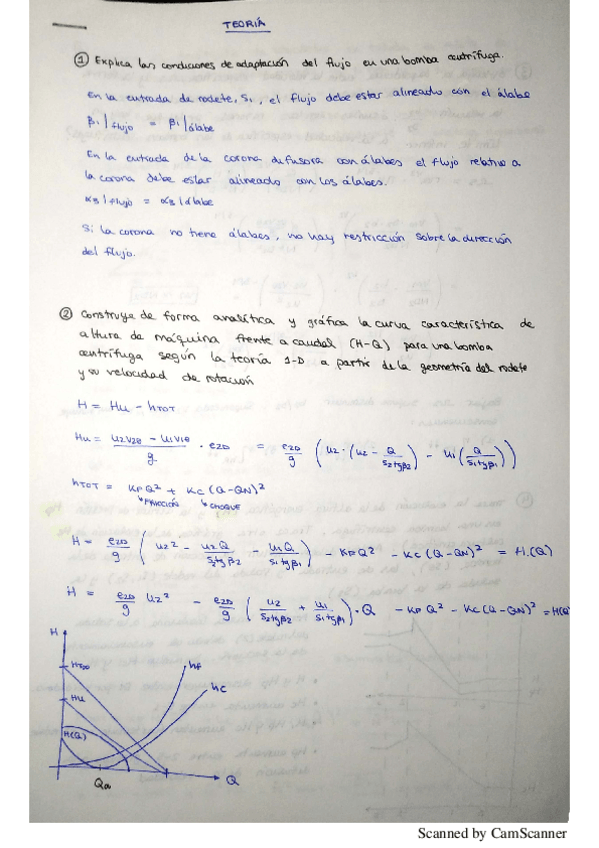 TEORÍA
① Explica las condiciones de adaptación del flujo en una bomba centrífuga.
En la entrada de rodete, S1, el flujo debe estar alineado con el álabe
β1|flujo = β1|álabe
En la entrada de la corona difusora con álabes el flujo relativo a
la corona debe estar alineado con los álabes.
α3|flujo = α3|álabe
Si la corona no tiene álabes, no hay restricción sobre la dirección
del flujo.
② Construye de forma analítica y gráfica la curva característica de
altura de máquina frente a caudal (H-Q) para una bomba
centrífuga según la teoría 1-D a partir de la geometría del rodete
y su velocidad de rotación
H = Hu - hTOT
Hu = (u2v2θ - u1v1θ)/g · e2D = e2D/g (u2·(u2 - Q/(s2tgβ2)) - u1(Q/(s1tgβ1)))
hTOT = KFQ² + KC(Q-QN)²
↳FRICCIÓN ↳CHOQUE
H = e2D/g (u2² - u2Q/(s2tgβ2) - u1Q/(s1tgβ1)) - KFQ² - KC(Q-QN)² = H(Q)
H = e2D/g u2² - e2D/g (u2/(s2tgβ2) + u1/(s1tgβ1))·Q - KFQ² - KC(Q-QN)² = H(Q)
H
hF
HT∞
hC
Hu
H(Q)
Q
Scanned by CamScanner